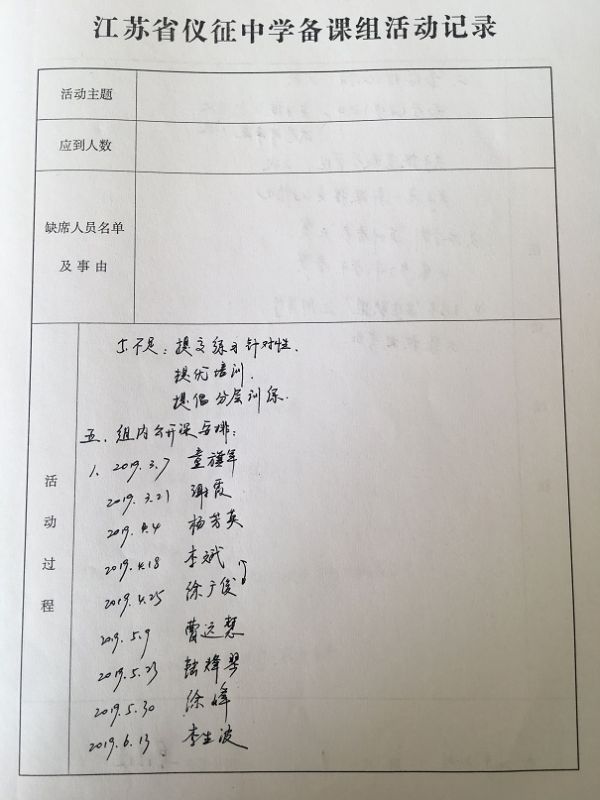 江苏省仪征中学备课组活动记录
活动主题
应到人数
缺席人员名单
及事由
活动过程
5.不足：提高练习针对性.
提优培训.
提倡分层训练.
五、组内公开课安排：
1、2019.3.7 童旗军
2019.3.21 谢霞
2019.4.4 杨芳英
2019.4.18 李斌
2019.4.25 徐广俊
2019.5.9 曹远慧
2019.5.23 陆烽琴
2019.5.30 徐峰
2019.6.13 李生波